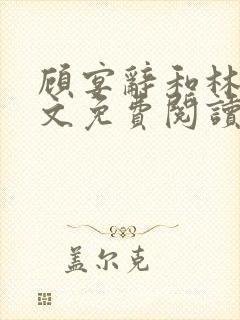 顾宴辭和林
文免費閱讀
盖尔克